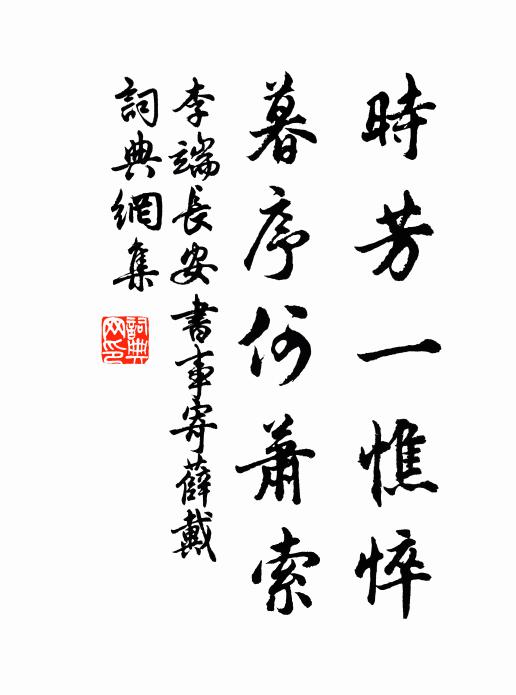 時芳一憔悴
暮序何蕭索
李端長安書事寄薛戴
詞典網集
詞典
网印